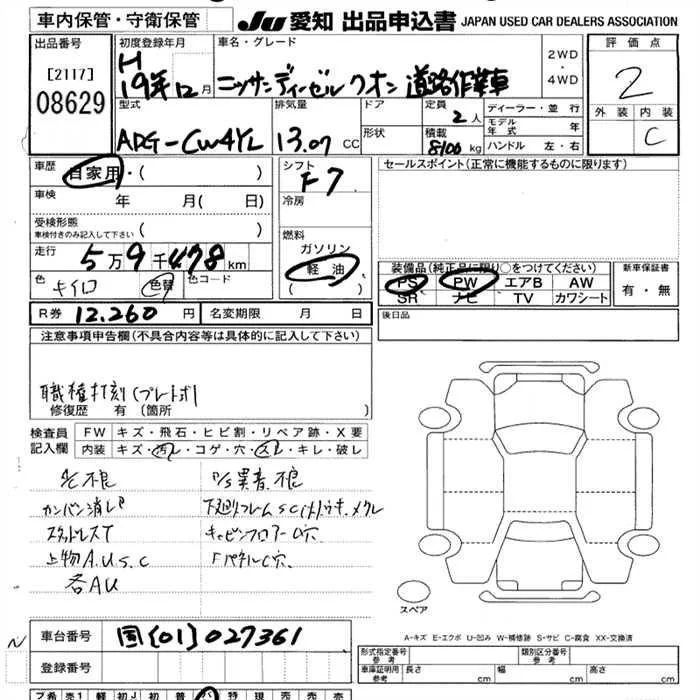 車内保管・守衛保管
JU 愛知 出品申込書 JAPAN USED CAR DEALERS ASSOCIATION
出品番号
[2117]
08629
初度登録年月
H
19年12月
車名・グレード
ニッサンディーゼル クオン 道路作業車
2WD
・
4WD
評価点
2
外装 内装
C
型式
ADG-CW4YL
排気量
13.07 CC
ドア
形状
定員
2人
積載
8100 kg
ディーラー・並行
モデル年式 年
ハンドル 左・右
車歴
自家用・( )
車検
年 月( 日)
受検形態
車検付きのみ記入して下さい ( )
走行
5万9千478km
色
キイロ
色替
色コード
シフト
F7
冷房
燃料
ガソリン
軽油
( )
セールスポイント(正常に機能するものに限ります)
装備品(純正品に限り○をつけてください)
PS PW エアB AW
SR ナビ TV カワシート
新車保証書
有・無
R券 12.260円
名変期限 月 日
後日品
注意事項申告欄(不具合内容等は具体的に記入して下さい)
職権打刻(プレート
修復歴 有(箇所 )
検査員
記入欄
FW キズ・飛石・ヒビ割・リペア跡・X要
内装 キズ・汚レ・コゲ・穴・スレ・キレ・破レ
不良
P/S異音、不良
カンバン消しP
下廻りフレムSC(大)ウキ、メクレ
スタットレスT
キャビンフロアーC穴
上物A.U.S.C
FパネルC穴.
各AU
スペア
A-キズ E-エクボ U-凹み W-補修跡 S-サビ C-腐食 XX-交換済
車台番号
国[01]027361
登録番号
形式指定番号
参考
類別区分番号
参考
車庫証明用
参考
長さ cm
幅 cm
高さ cm